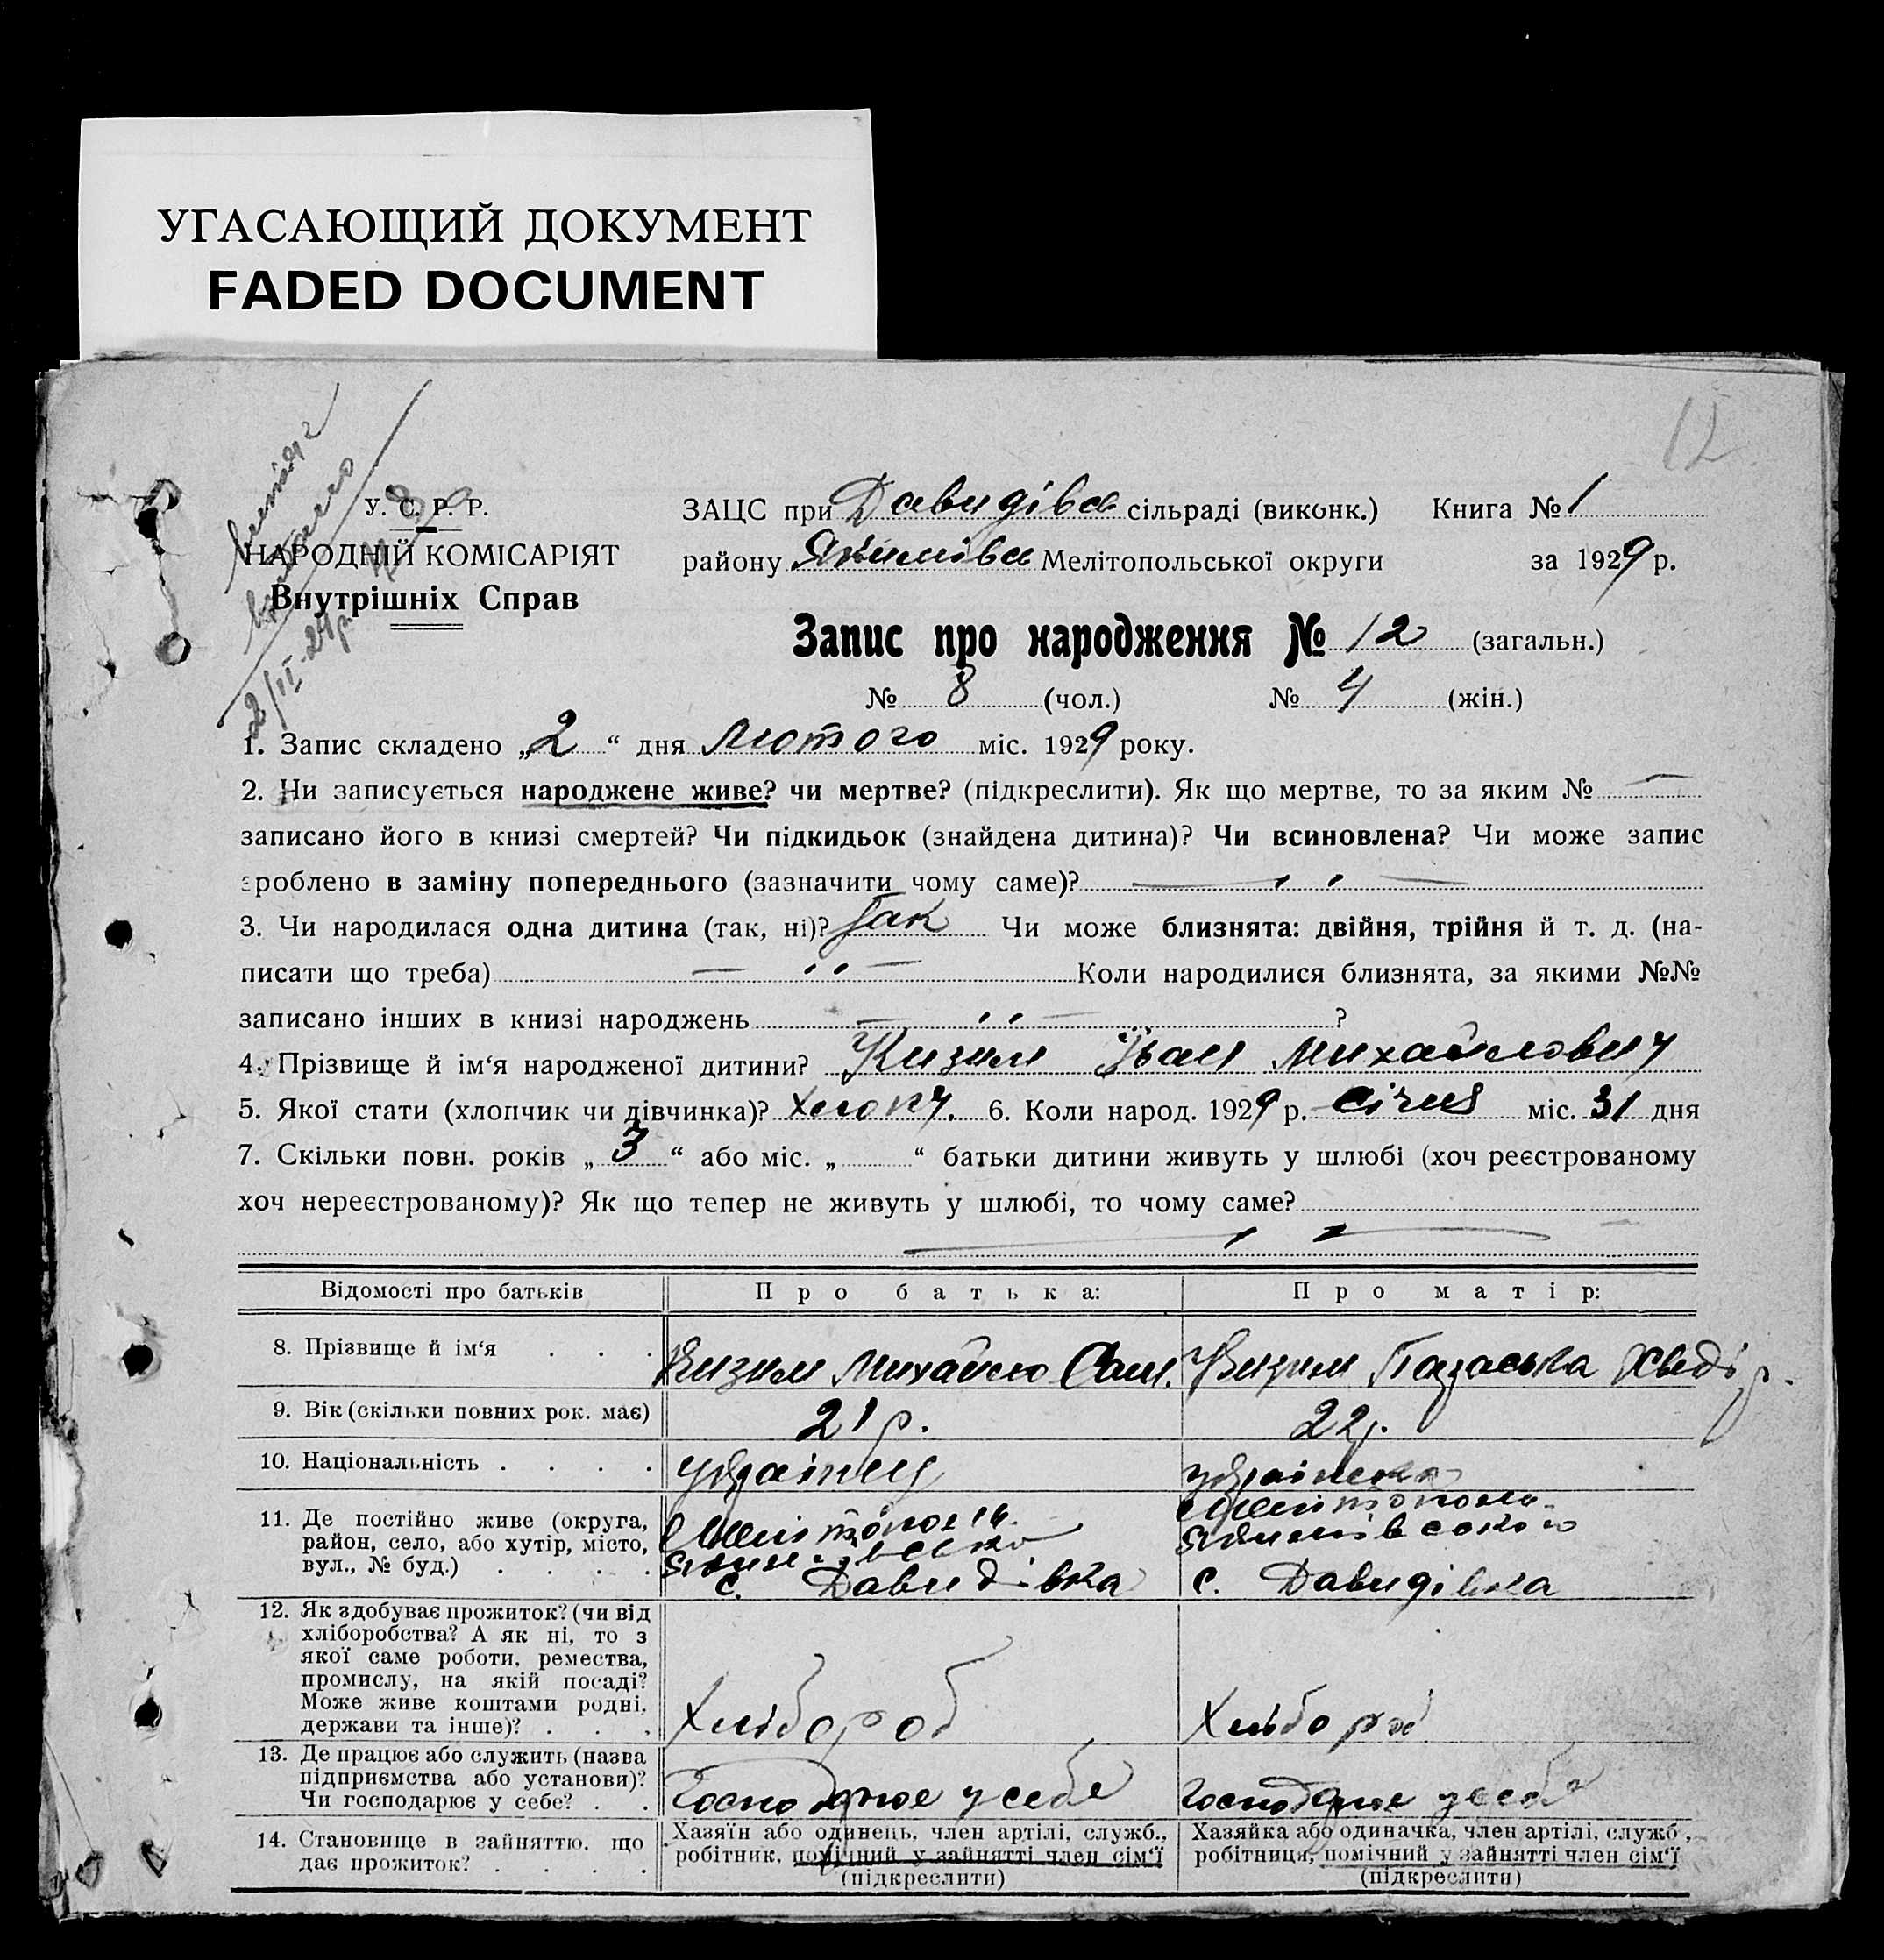 УГАСАЮЩИЙ ДОКУМЕНТ
FADED DOCUMENT
12
У. С. Р. Р.
НАРОДНІЙ КОМІСАРІЯТ
Внутрішніх Справ
2/II-29р.
ЗАЦС при Давидівка сільраді (виконк.) Книга № 1
району Якимівка Мелітопольської округи за 1929 р.
Запис про народження № 12 (загальн.)
№ 8 (чол.) № 4 (жін.)
1. Запис складено „2“ дня лютого міс. 1929 року.
2. Чи записується народжене живе? чи мертве? (підкреслити). Як що мертве, то за яким № —
записано його в книзі смертей? Чи підкидьок (знайдена дитина)? Чи всиновлена? Чи може запис
зроблено в заміну попереднього (зазначити чому саме)?
3. Чи народилася одна дитина (так, ні)? Так Чи може близнята: двійня, трійня й т. д. (на-
писати що треба) Коли народилися близнята, за якими №№
записано інших в книзі народжень ?
4. Прізвище й ім‘я народженої дитини? Кизим Іван Михайлович
5. Якої стати (хлопчик чи дівчинка)? Хлопч. 6. Коли народ. 1929 р. Січня міс. 31 дня
7. Скільки повн. років „3“ або міс. „ “ батьки дитини живуть у шлюбі (хоч реєстрованому
хоч нереєстрованому)? Як що тепер не живуть у шлюбі, то чому саме?
Відомості про батьків Про батька: Про матір:
8. Прізвище й ім‘я . . . Кизим Михайло Сам. Кизим Параська Хведір.
9. Вік (скільки повних рок. має) 21 р. 22 р.
10. Національність . . . . українец українка
11. Де постійно живе (округа,
район, село, або хутір, місто,
вул., № буд.) . . . .
Мелітополь.
Якимівсько
с. Давидівка
Мелітополь.
Якимівського
с. Давидівка
12. Як здобуває прожиток? (чи від
хліборобства? А як ні, то з
якої саме роботи, ремества,
промислу, на якій посаді?
Може живе коштами родні,
держави та інше)? . . .
Хлібороб
Хлібороб
13. Де працює або служить (назва
підприємства або установи)?
Чи господарює у себе? . .
Господарює у себе
Господарює у себе
14. Становище в зайняттю, що
дає прожиток? . . . .
Хазяїн або одинець, член артілі, служб.,
робітник, помічний у зайнятті член сім‘ї
(підкреслити)
Хазяйка або одиначка, член артілі, служб.,
робітниця, помічний у зайнятті член сім‘ї
(підкреслити)